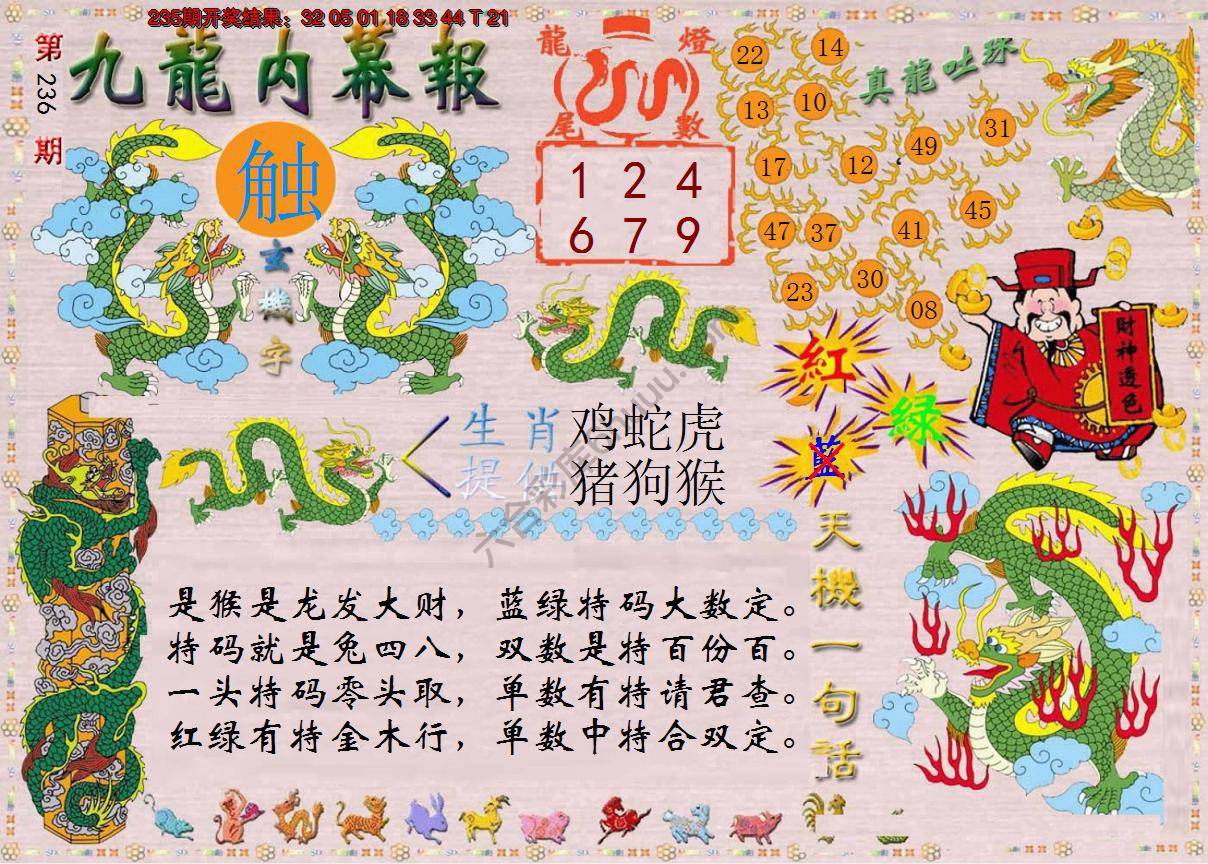 235期开奖结果：32 05 01 18 33 44 T 21
第236期
九龍内幕報
触
玄機字
龍燈
尾數
1 2 4
6 7 9
真龍吐珠
22 14
13 10
49 31
17 12
45
47 37 41
30
23 08
財神透色
紅
綠
藍
生肖 鸡蛇虎
提供 猪狗猴
六合彩库
天機一句話
是猴是龙发大财，蓝绿特码大数定。
特码就是兔四八，双数是特百份百。
一头特码零头取，单数有特请君查。
红绿有特金木行，单数中特合双定。